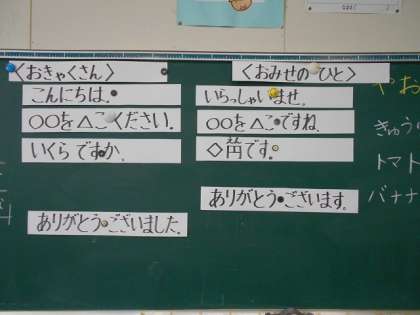 〈おきゃくさん〉
こんにちは。
○○を△こください。
いくらですか。
ありがとうございました。
〈おみせのひと〉
いらっしゃいませ。
○○を△こですね。
◇円です。
ありがとうございます。
やお
きゅう
トマト
バナナ